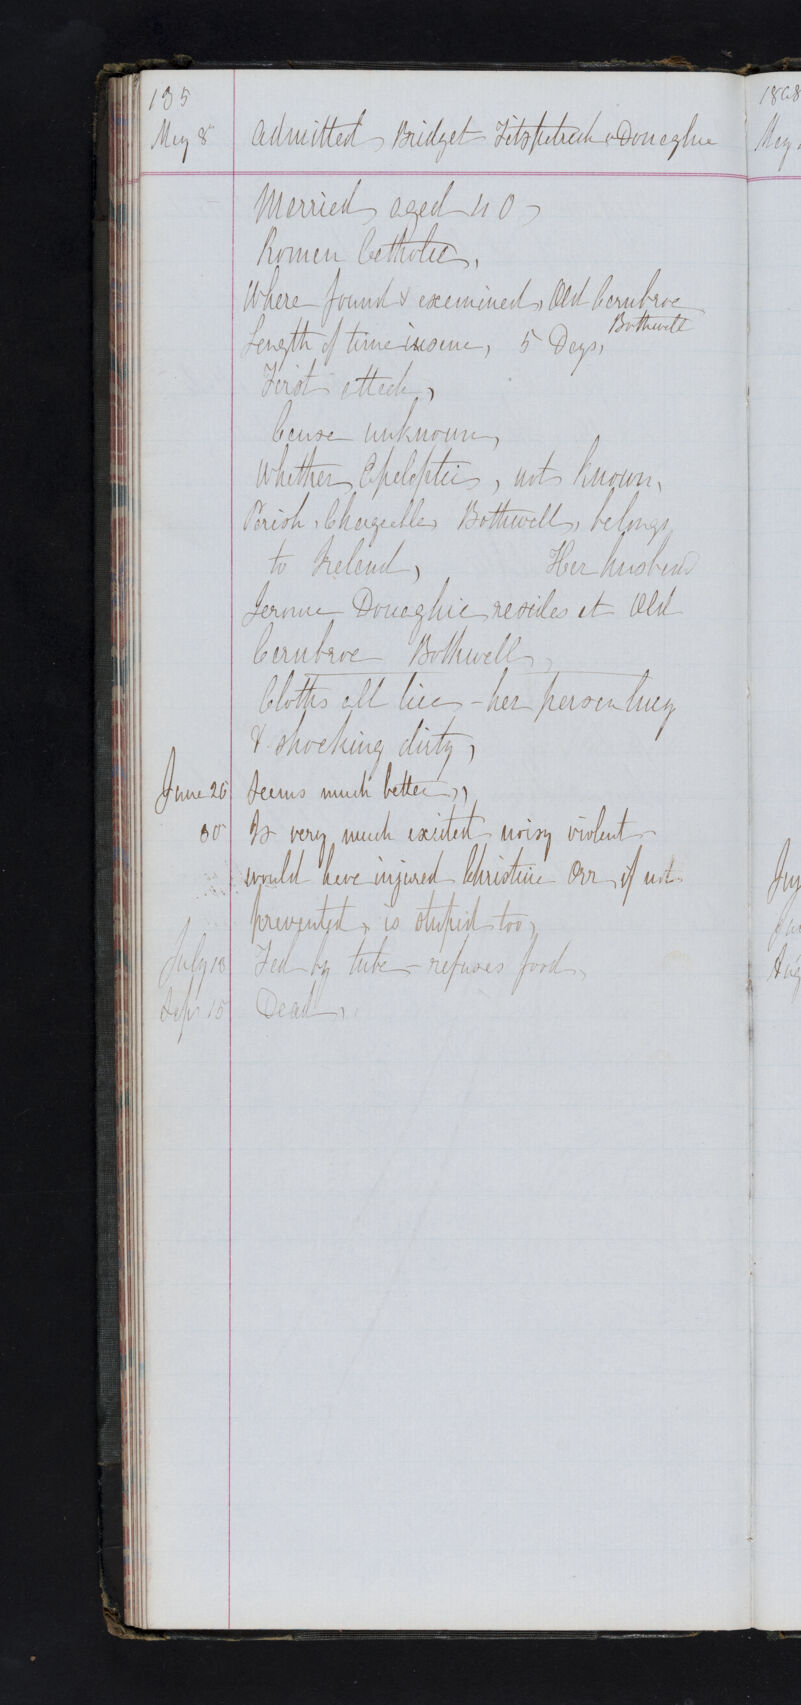 135
May 8 Admitted, Bridget Fitzpatrick or Donaghue
Married, aged 40,
Roman Catholic,
Where found & examined, Old Carnbroe
Bothwell
Length of time insane, 5 Days,
First attack,
Cause unknown,
Whether Epileptic, not known,
Parish, Chargeable, Bothwell, belongs
to Ireland, Her husband
Jerome Donaghie resides at Old
Carnbroe Bothwell,
Cloths all lice - her person lucy
& shocking dirty,
June 26 Seems much better,,
30 Is very much exsited noisy violent
would have injured Christine Orr if not
prevented, is stupid too,
July 18 Fed by tube - refuses food,
Sepr 15 Dead,
1868
May
Aug